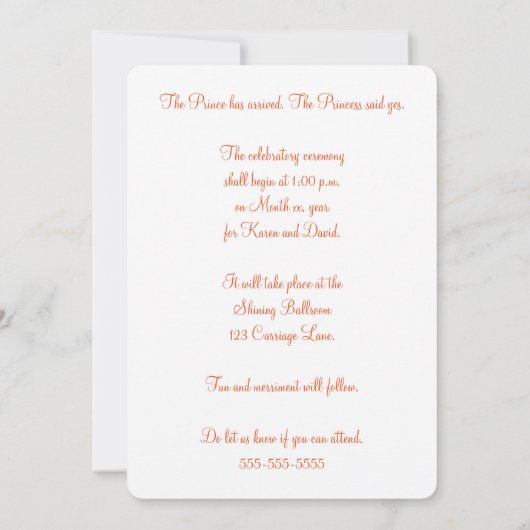 The Prince has arrived. The Princess said yes.
The celebratory ceremony
shall begin at 1:00 p.m.
on Month xx, year
for Karen and David.
It will take place at the
Shining Ballroom
123 Carriage Lane.
Fun and merriment will follow.
Do let us know if you can attend.
555-555-5555